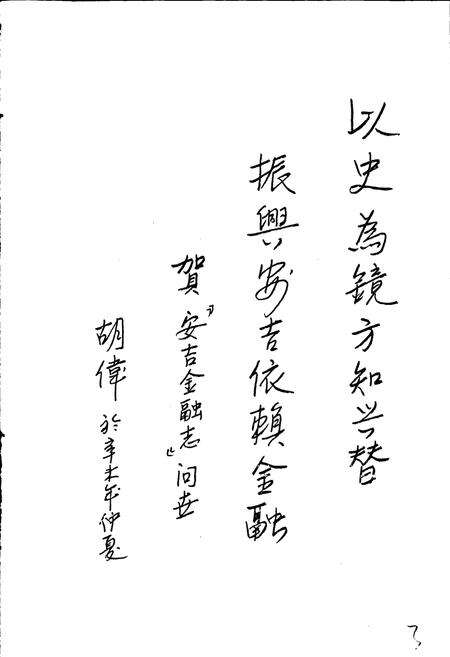 以史為鏡方知兴替
振興安吉依賴金融
賀《安吉金融志》问世
胡偉於辛未年仲夏